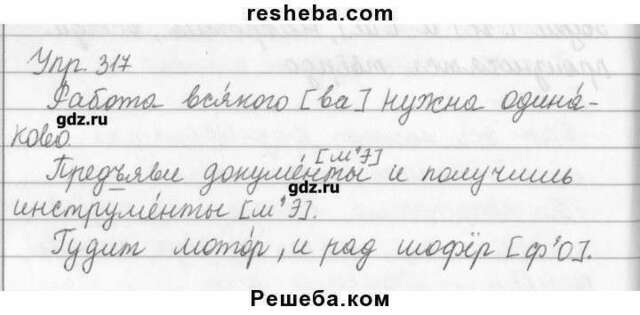 resheba.com
Упр. 317
Работа вся́кого [ва] нужна одина́-
gdz.ru
ково.
[м'Э]
Предъяви докуме́нты и получишь
gdz.ru
инструме́нты [м'Э].
Гудит мото́р, и рад шофёр [ф'О].
Решеба.ком